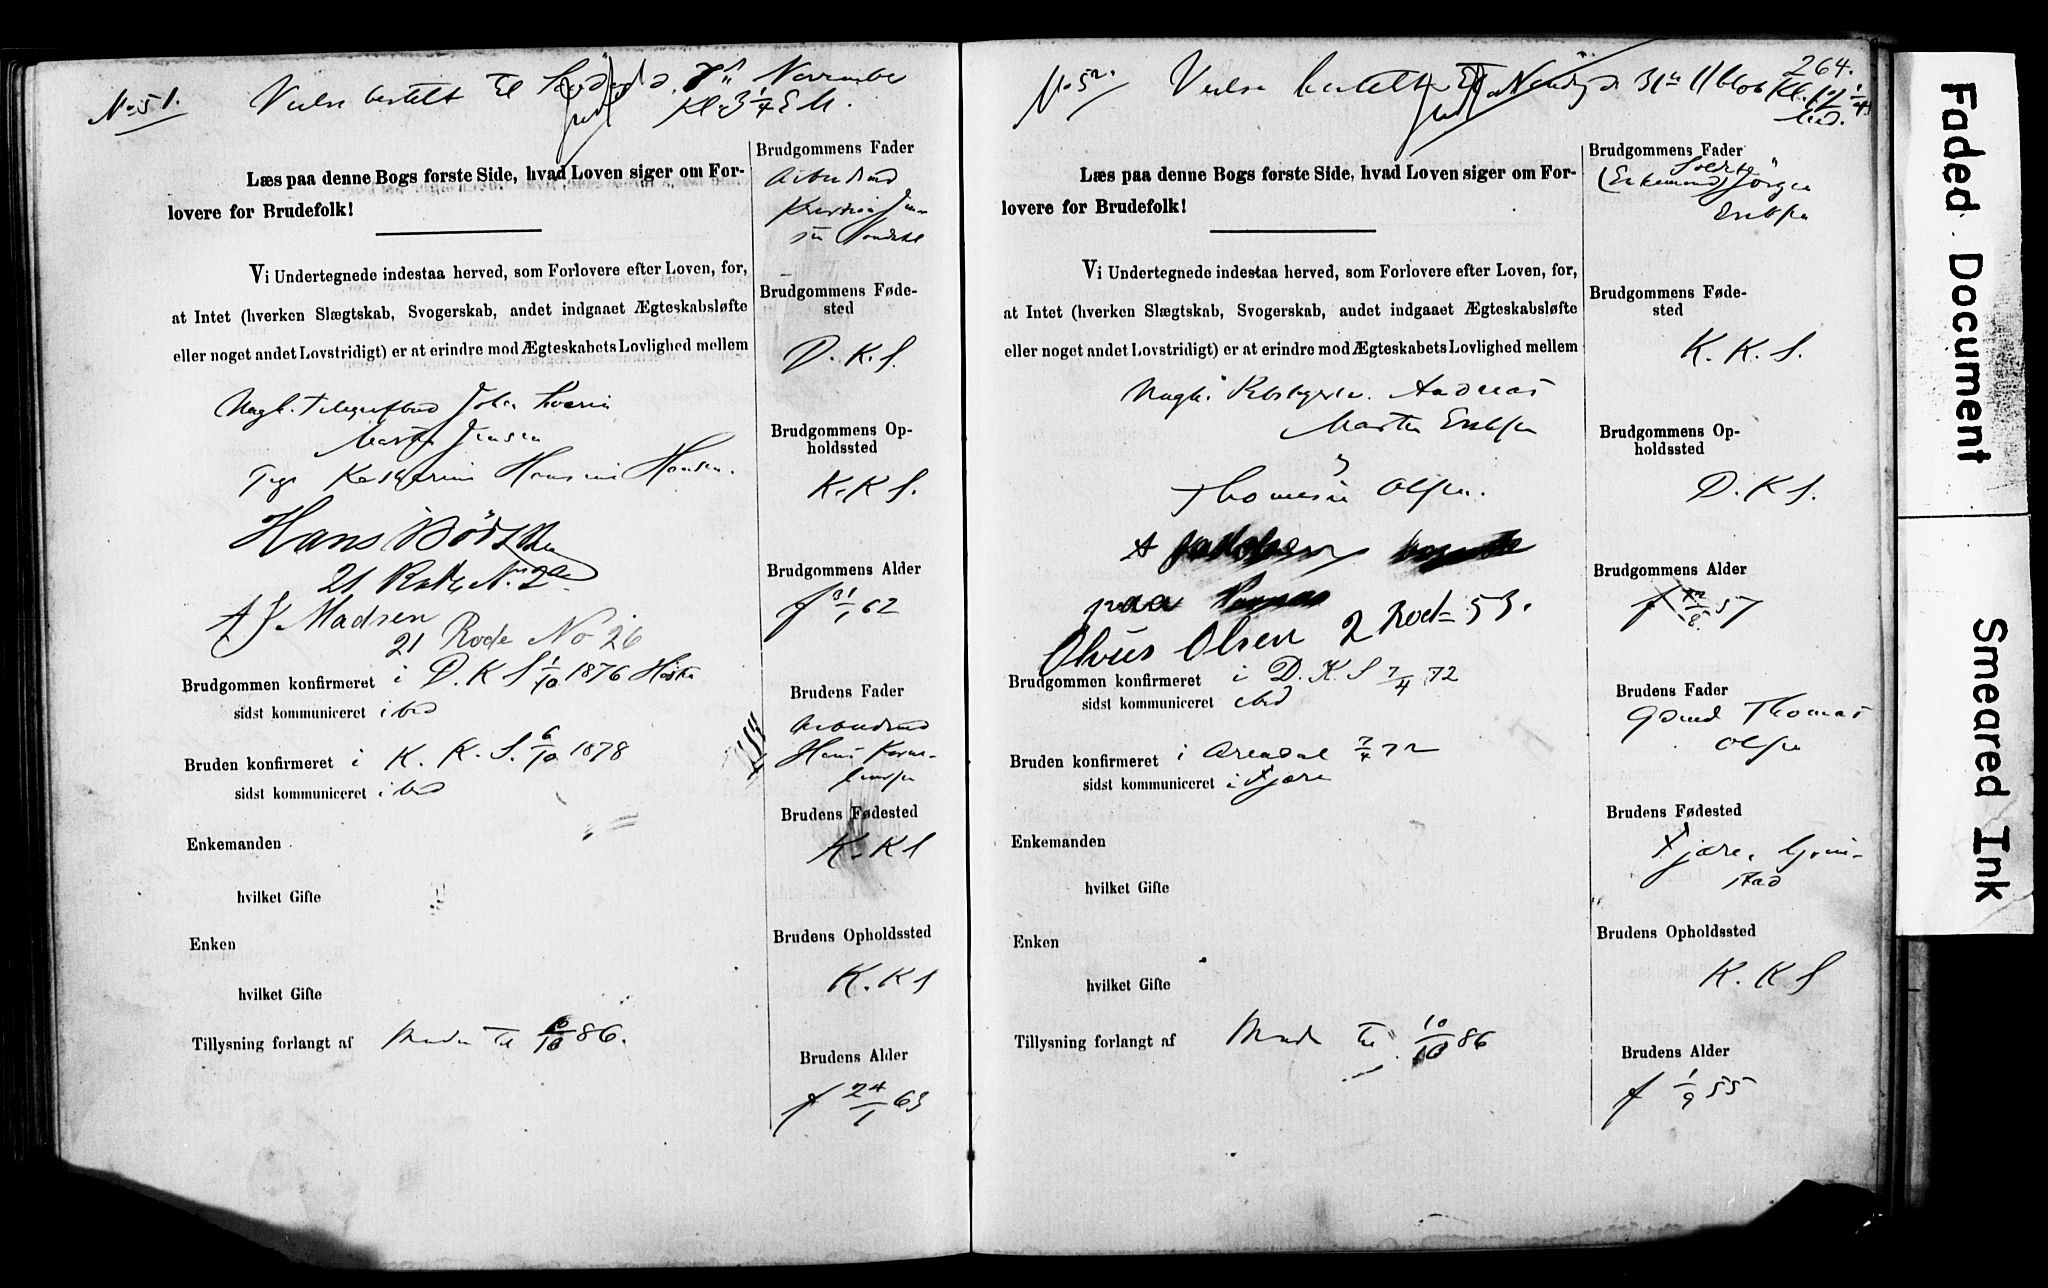 No 51.
Vielse bestilt til Lördag d. 7de November
Kl. 3 1/4 E M.
Læs paa denne Bogs første Side, hvad Loven siger om For-
lovere for Brudefolk!
Vi Undertegnede indestaa herved, som Forlovere efter Loven, for,
at Intet (hverken Slægtskab, Svogerskab, andet indgaaet Ægteskabsløfte
eller noget andet Lovstridigt) er at erindre mod Ægteskabets Lovlighed mellem
Ungk. Telegrafbud Johan
Martin Jensen
Pige Katharine Hansine Hansen.
Hans
21 Rode N. 2
A J. Madsen
21 Rode No 26
Brudgommen konfirmeret i D. K S 1/10 1876
sidst kommuniceret ibid
Bruden konfirmeret i K. K. S. 6/10 1878
sidst kommuniceret ibid
Enkemanden
hvilket Gifte
Enken
hvilket Gifte
Tillysning forlangt af Bruden til 10/10 86.
Brudgommens Fader
Arbeidsmd
Kristian Jen-
sen
Brudgommens Føde-
sted
D. K. S.
Brudgommens Op-
holdssted
K. K S.
Brudgommens Alder
f 31/1 62
Brudens Fader
Arbeidsmd
Hans
Brudens Fødested
K. K S
Brudens Opholdssted
K. K S
Brudens Alder
f 24/1 63
264.
No 52.
Vielse bestilt til Söndag d. 31te
Kl. 12 1/4
Læs paa denne Bogs første Side, hvad Loven siger om For-
lovere for Brudefolk!
Vi Undertegnede indestaa herved, som Forlovere efter Loven, for,
at Intet (hverken Slægtskab, Svogerskab, andet indgaaet Ægteskabsløfte
eller noget andet Lovstridigt) er at erindre mod Ægteskabets Lovlighed mellem
Ungk. Andreas
Martin Eriksen
Thomesine Olsen.
A Jakobsen
paa
Olvius Olsen 2 Rode 53.
Brudgommen konfirmeret i D. K. S 7/4 72
sidst kommuniceret ibid
Bruden konfirmeret i Arendal 7/4 72
sidst kommuniceret i Fjære
Enkemanden
hvilket Gifte
Enken
hvilket Gifte
Tillysning forlangt af Brud til 10/10 86
Brudgommens Fader
(Enkemand) Jörgen
Eriksen
Brudgommens Føde-
sted
K. K. S.
Brudgommens Op-
holdssted
D. K S.
Brudgommens Alder
57
Brudens Fader
Gbmd Thomas
Olsen
Brudens Fødested
Fjære, Grim-
stad
Brudens Opholdssted
K. K S
Brudens Alder
f 1/9 55
Faded Document
Smeared Ink